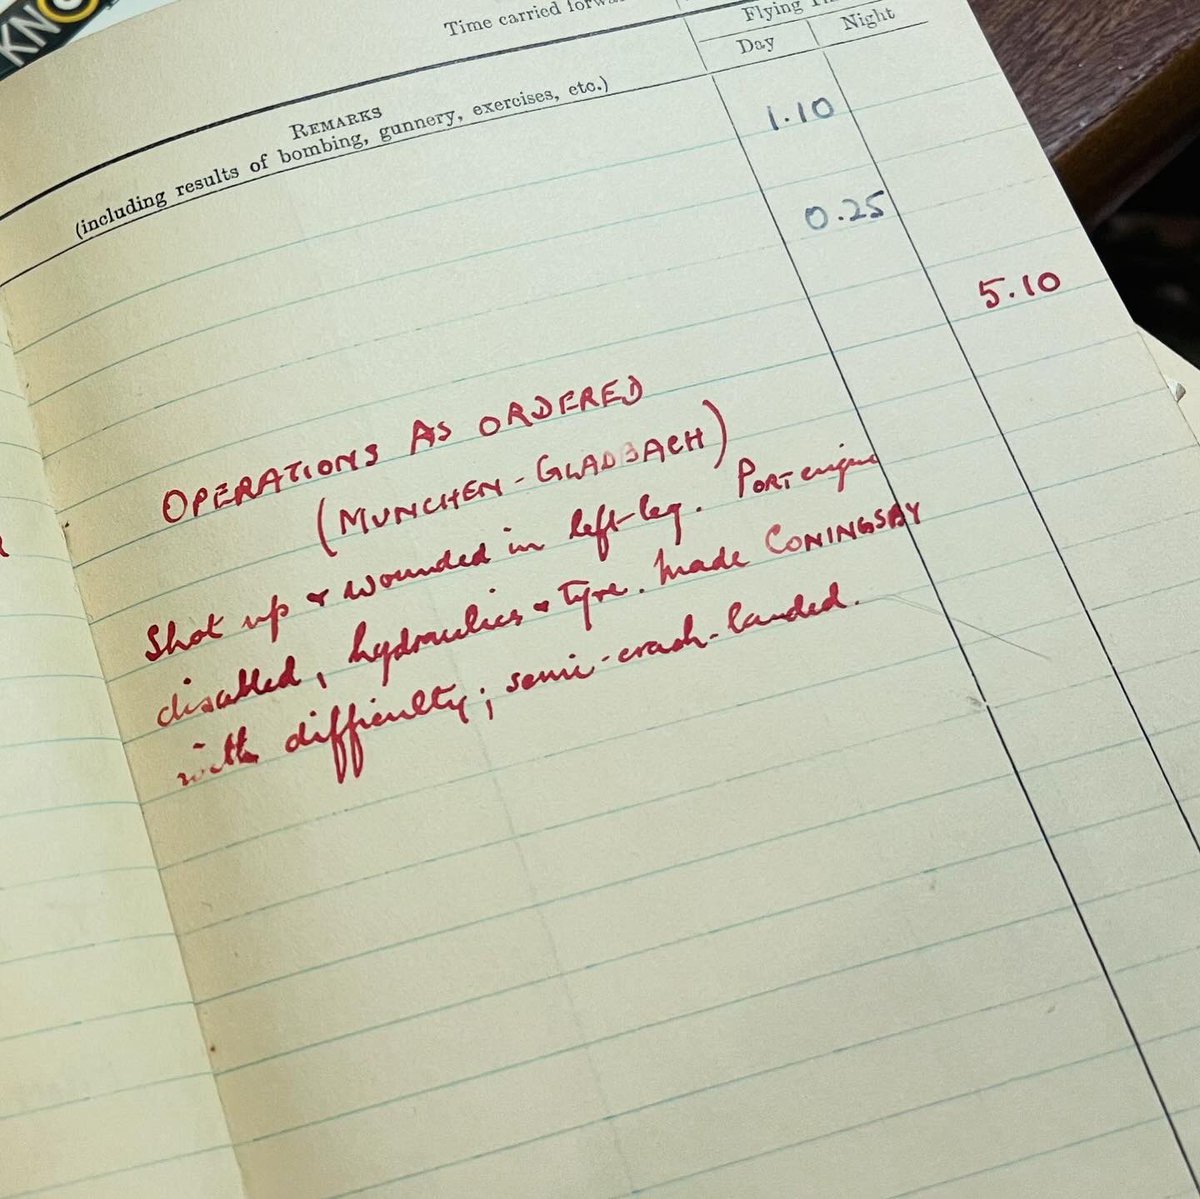 Time carried
Flying
Day Night
REMARKS
(including results of bombing, gunnery, exercises, etc.)
1.10
0.25
5.10
OPERATIONS AS ORDERED
(MUNCHEN-GLADBACH)
Shot up & wounded in left leg. PORT engine
disabled, hydraulics & tyre. Made CONINGSBY
with difficulty; semi-crash-landed.